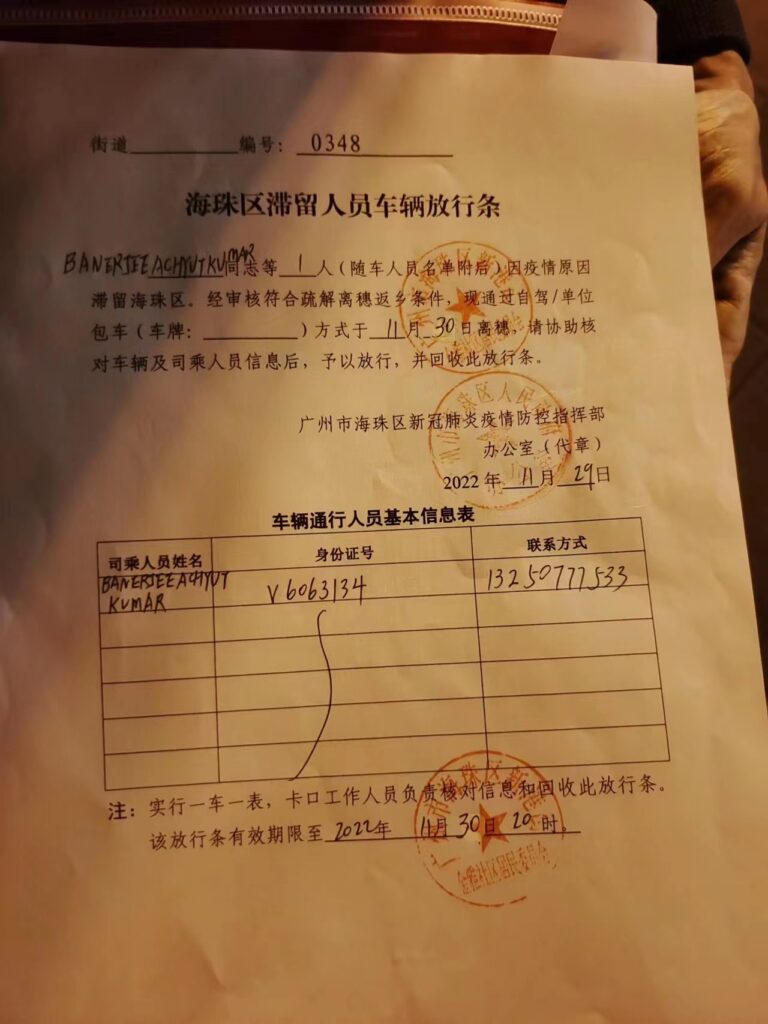 街道________编号：0348
海珠区滞留人员车辆放行条
BANERJEE ACHYUT KUMAR同志等 1 人（随车人员名单附后）因疫情原因
滞留海珠区。经审核符合疏解离穗返乡条件，现通过自驾/单位
包车（车牌：________）方式于 11月 30日离穗，请协助核
对车辆及司乘人员信息后，予以放行，并回收此放行条。
广州市海珠区新冠肺炎疫情防控指挥部
办公室（代章）
2022年 11月 29日
车辆通行人员基本信息表
司乘人员姓名 身份证号 联系方式
BANERJEE ACHYUT KUMAR V6063134 13250777533
注：实行一车一表，卡口工作人员负责核对信息和回收此放行条。
该放行条有效期限至 2022年 11月 30日 20时。
社区居民委员会